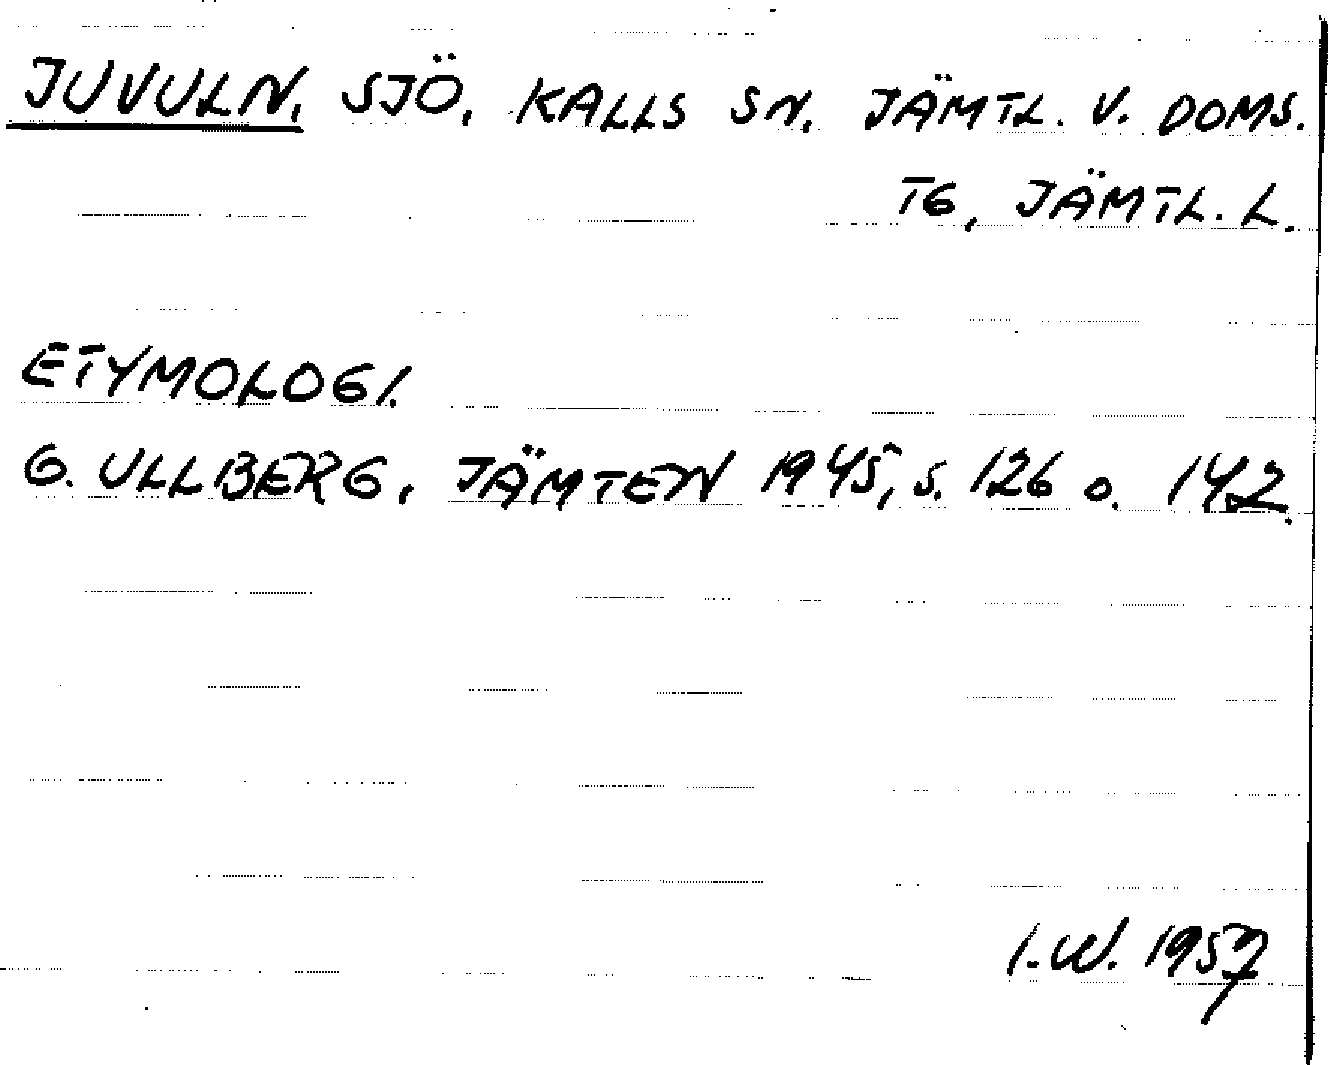 JUVULN, SJÖ, KALLS SN, JÄMTL. V. DOMS.
TG, JÄMTL. L.
ETYMOLOGI.
G. ULLBERG, JÄMTEN 1945, s. 126 o. 142.
I.W. 1957